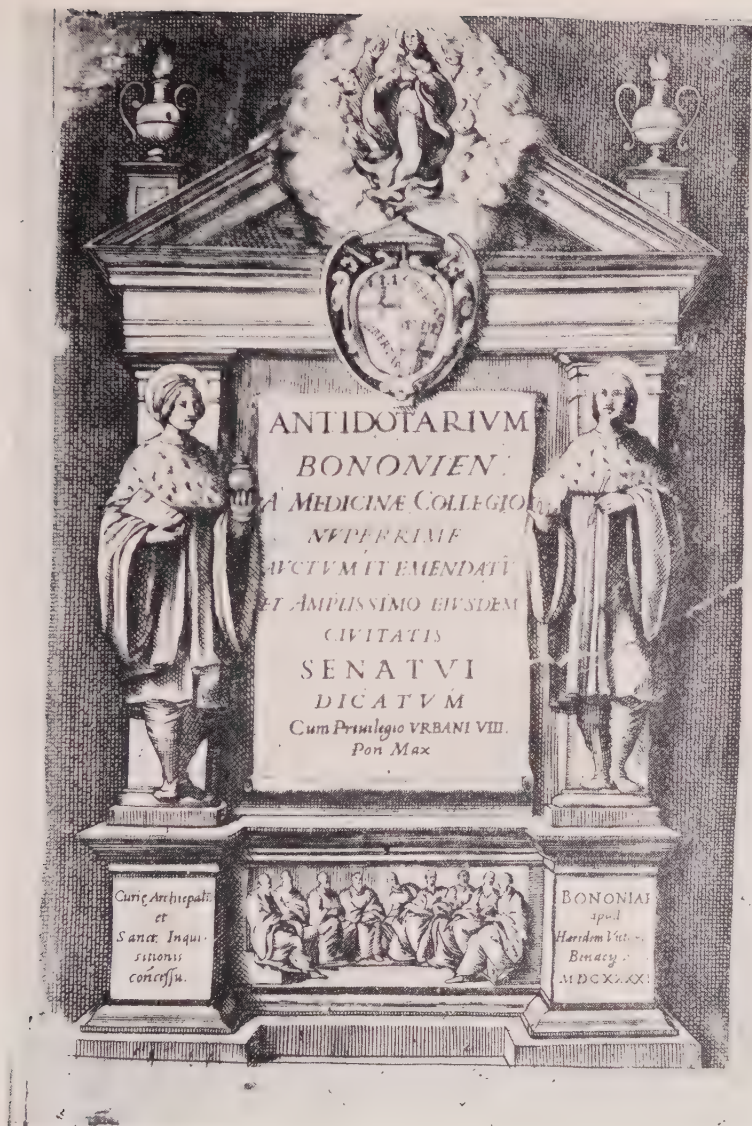 ANTIDOTARIVM
BONONIEN:
A MEDICINÆ COLLEGIO
NVPERRIME
AVCTVM ET EMENDATV̄
ET AMPLISSIMO EIVSDEM
CIVITATIS
SENATVI
DICATVM
Cum Priuilegio VRBANI VIII.
Pon Max
Curię Archiepali
et
Sanctæ Inqui-
sitionis
concessu.
BONONIAE
apud
Hæredem
Benacij